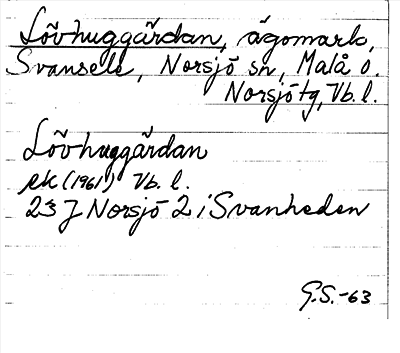 Lövhuggårdan, ägomark,
Svansele, Norsjö sn, Malå o.
Norsjö tg, Vb. l.
Lövhuggårdan
ek (1961) Vb. l.
23 J Norsjö 2 i Svanheden
G.S.-63